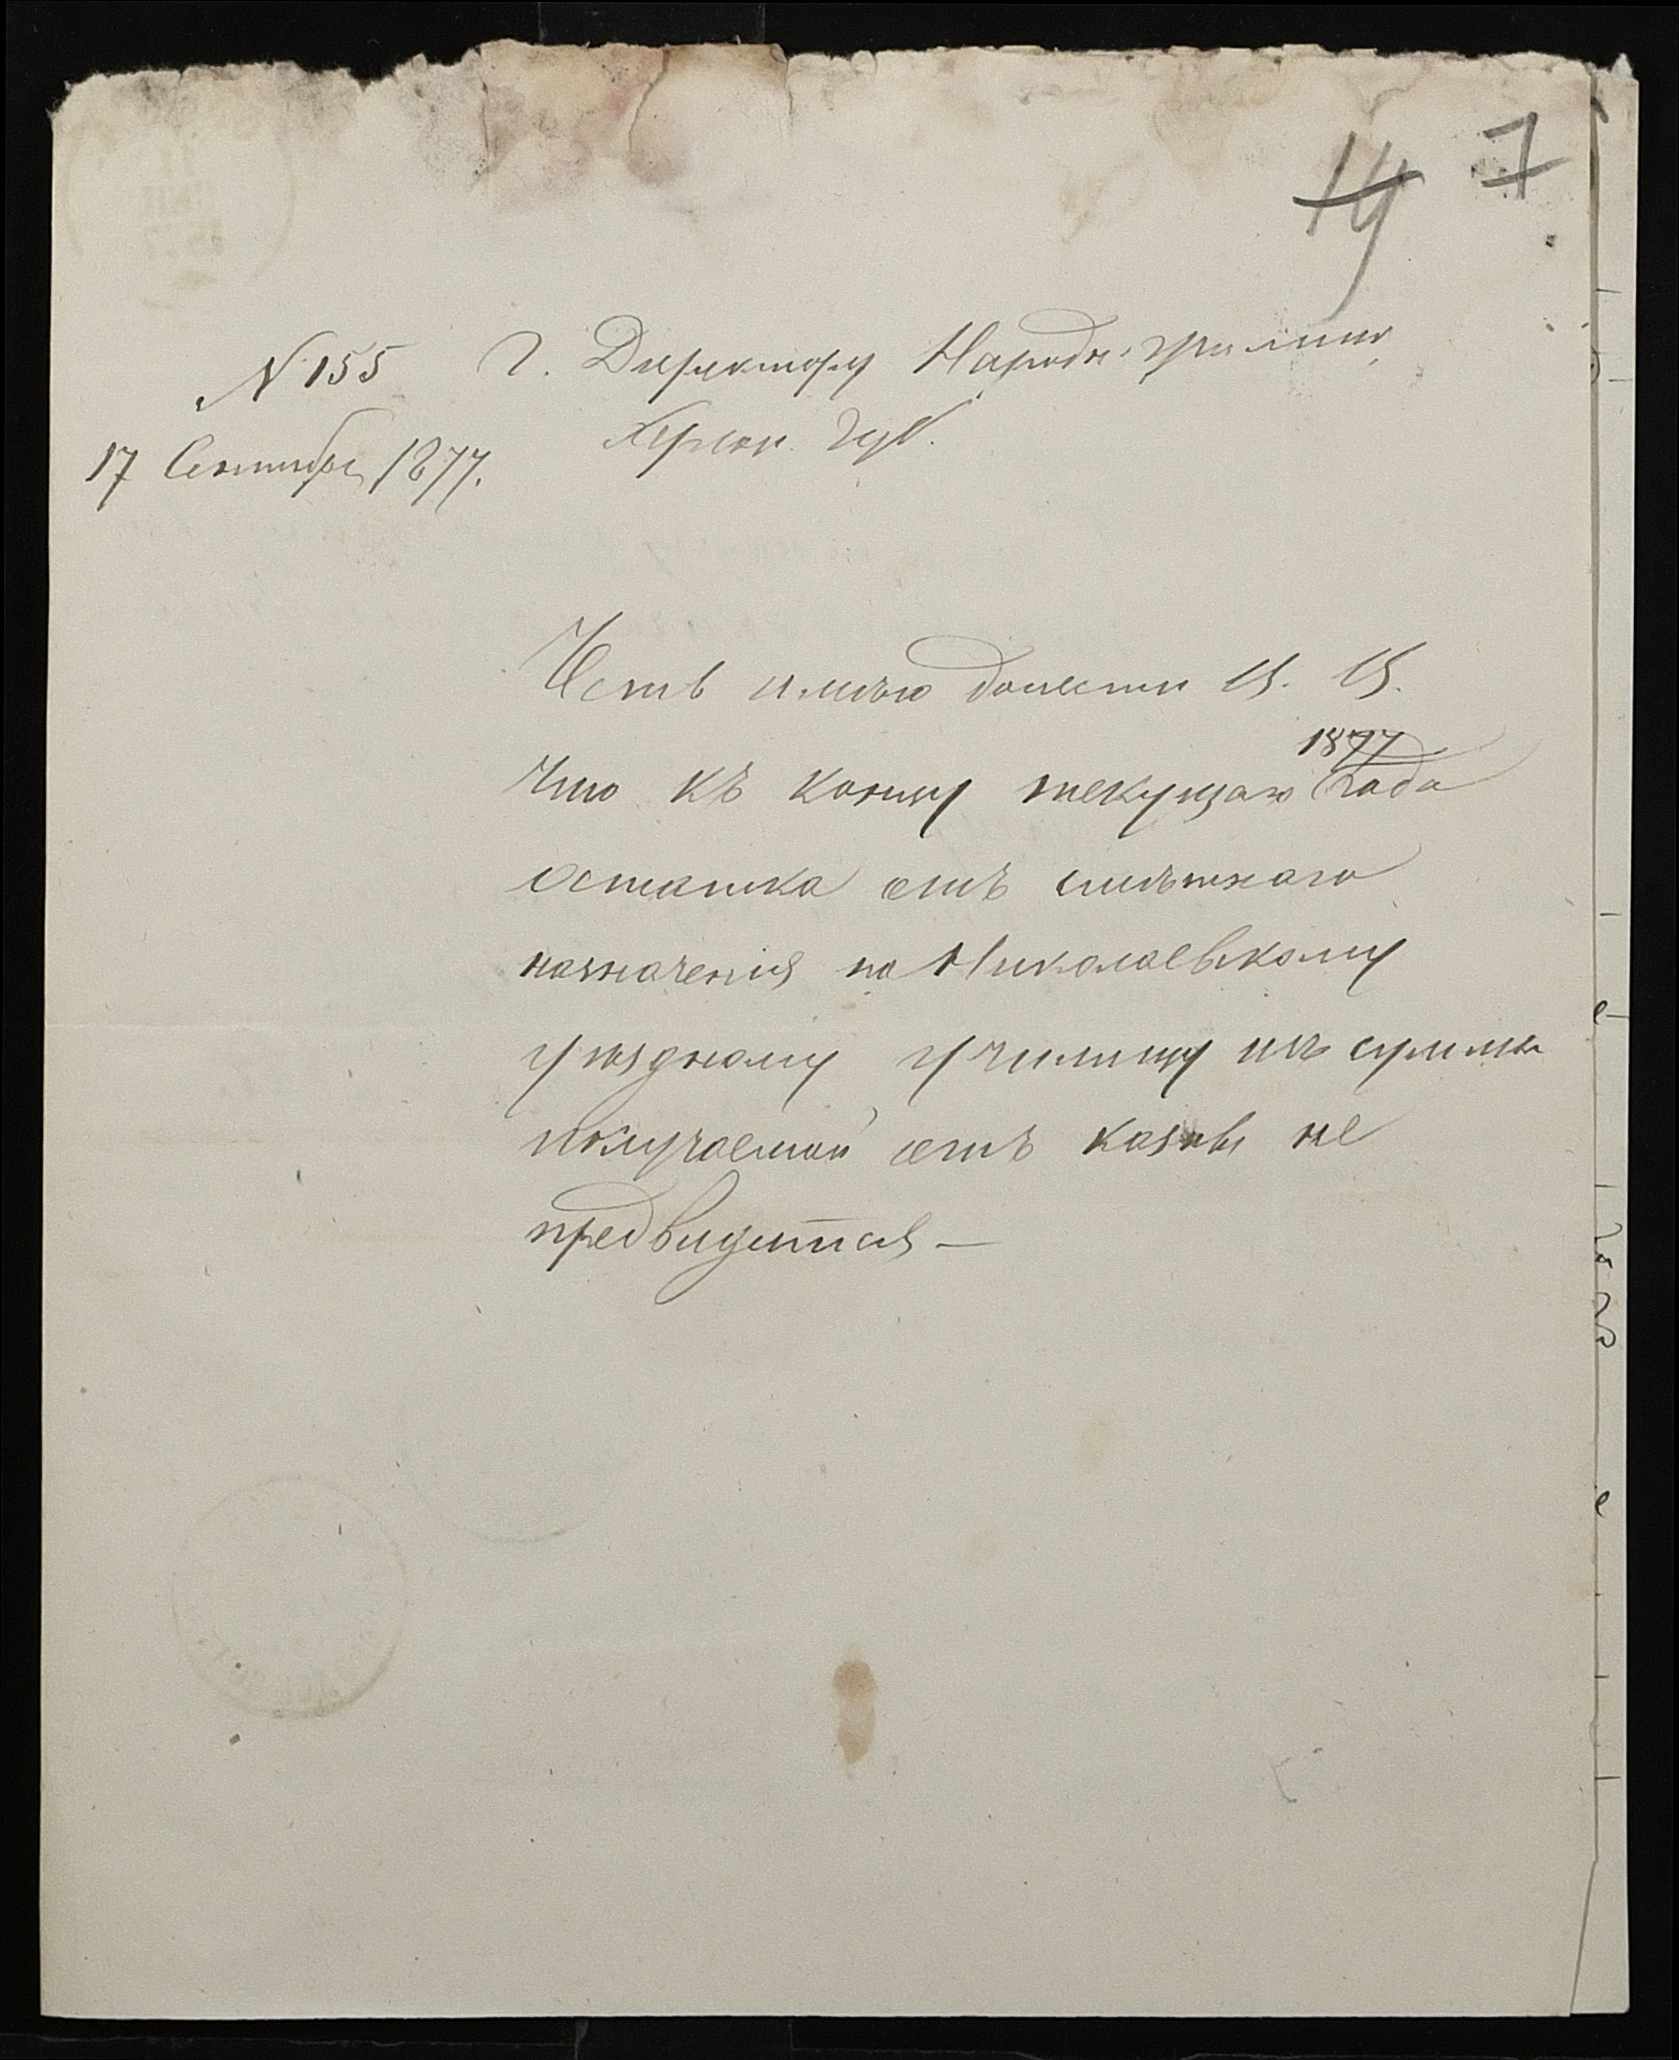 14 7
N 155 Г. Директору Народн. училищ
17 Сентября 1877. Херсон. Губ.
Честь имѣю донести В. В.
1877
Что къ концу текущаго года
остатка отъ смѣтнаго
назначенія по Николаевскому
уѣздному училищу изъ суммы
получаемой отъ казны не
предвидится —